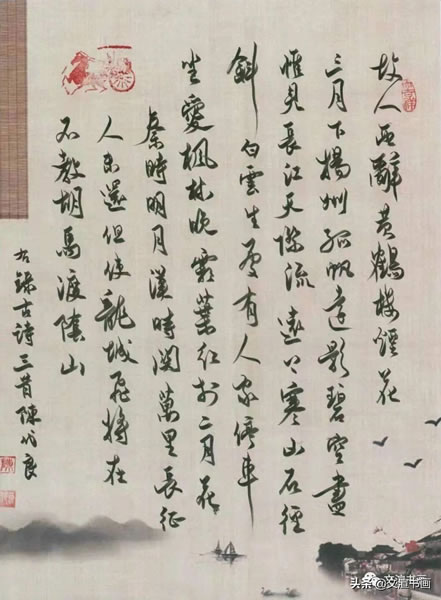 故人西辭黄鶴樓煙花
三月下揚州孤帆遠影碧空盡
惟見長江天際流遠上寒山石徑
斜白雲生處有人家停車
坐愛楓林晚霜葉紅於二月花
秦時明月漢時関萬里長征
人未還但使龍城飛將在
不教胡馬渡陰山
右錄古詩三首陳良
头条 @文渲书画